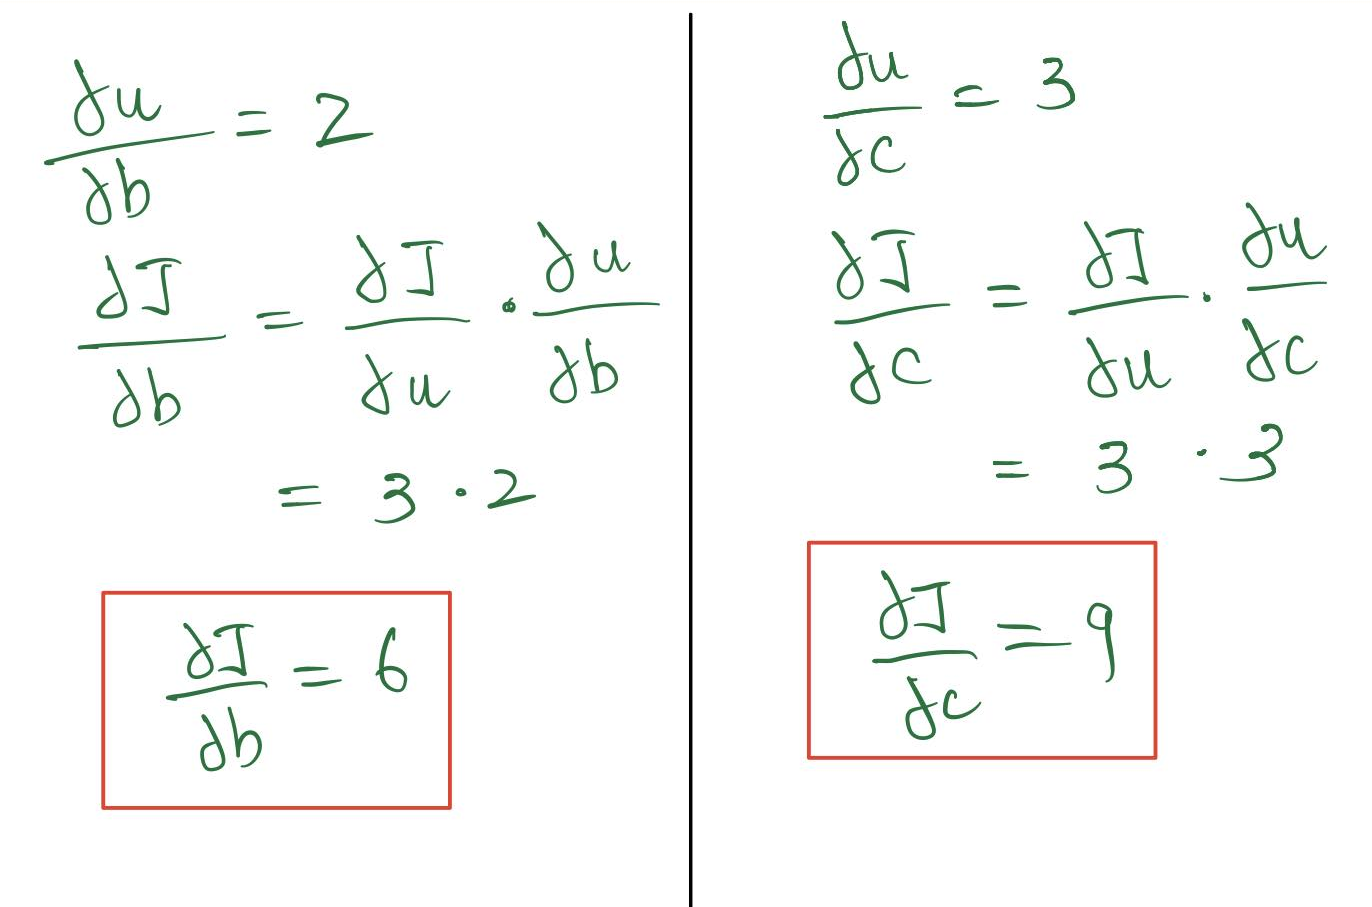 ∂u/∂b = 2
∂J/∂b = ∂J/∂u · ∂u/∂b
= 3 · 2
∂J/∂b = 6
∂u/∂c = 3
∂J/∂c = ∂J/∂u · ∂u/∂c
= 3 · 3
∂J/∂c = 9